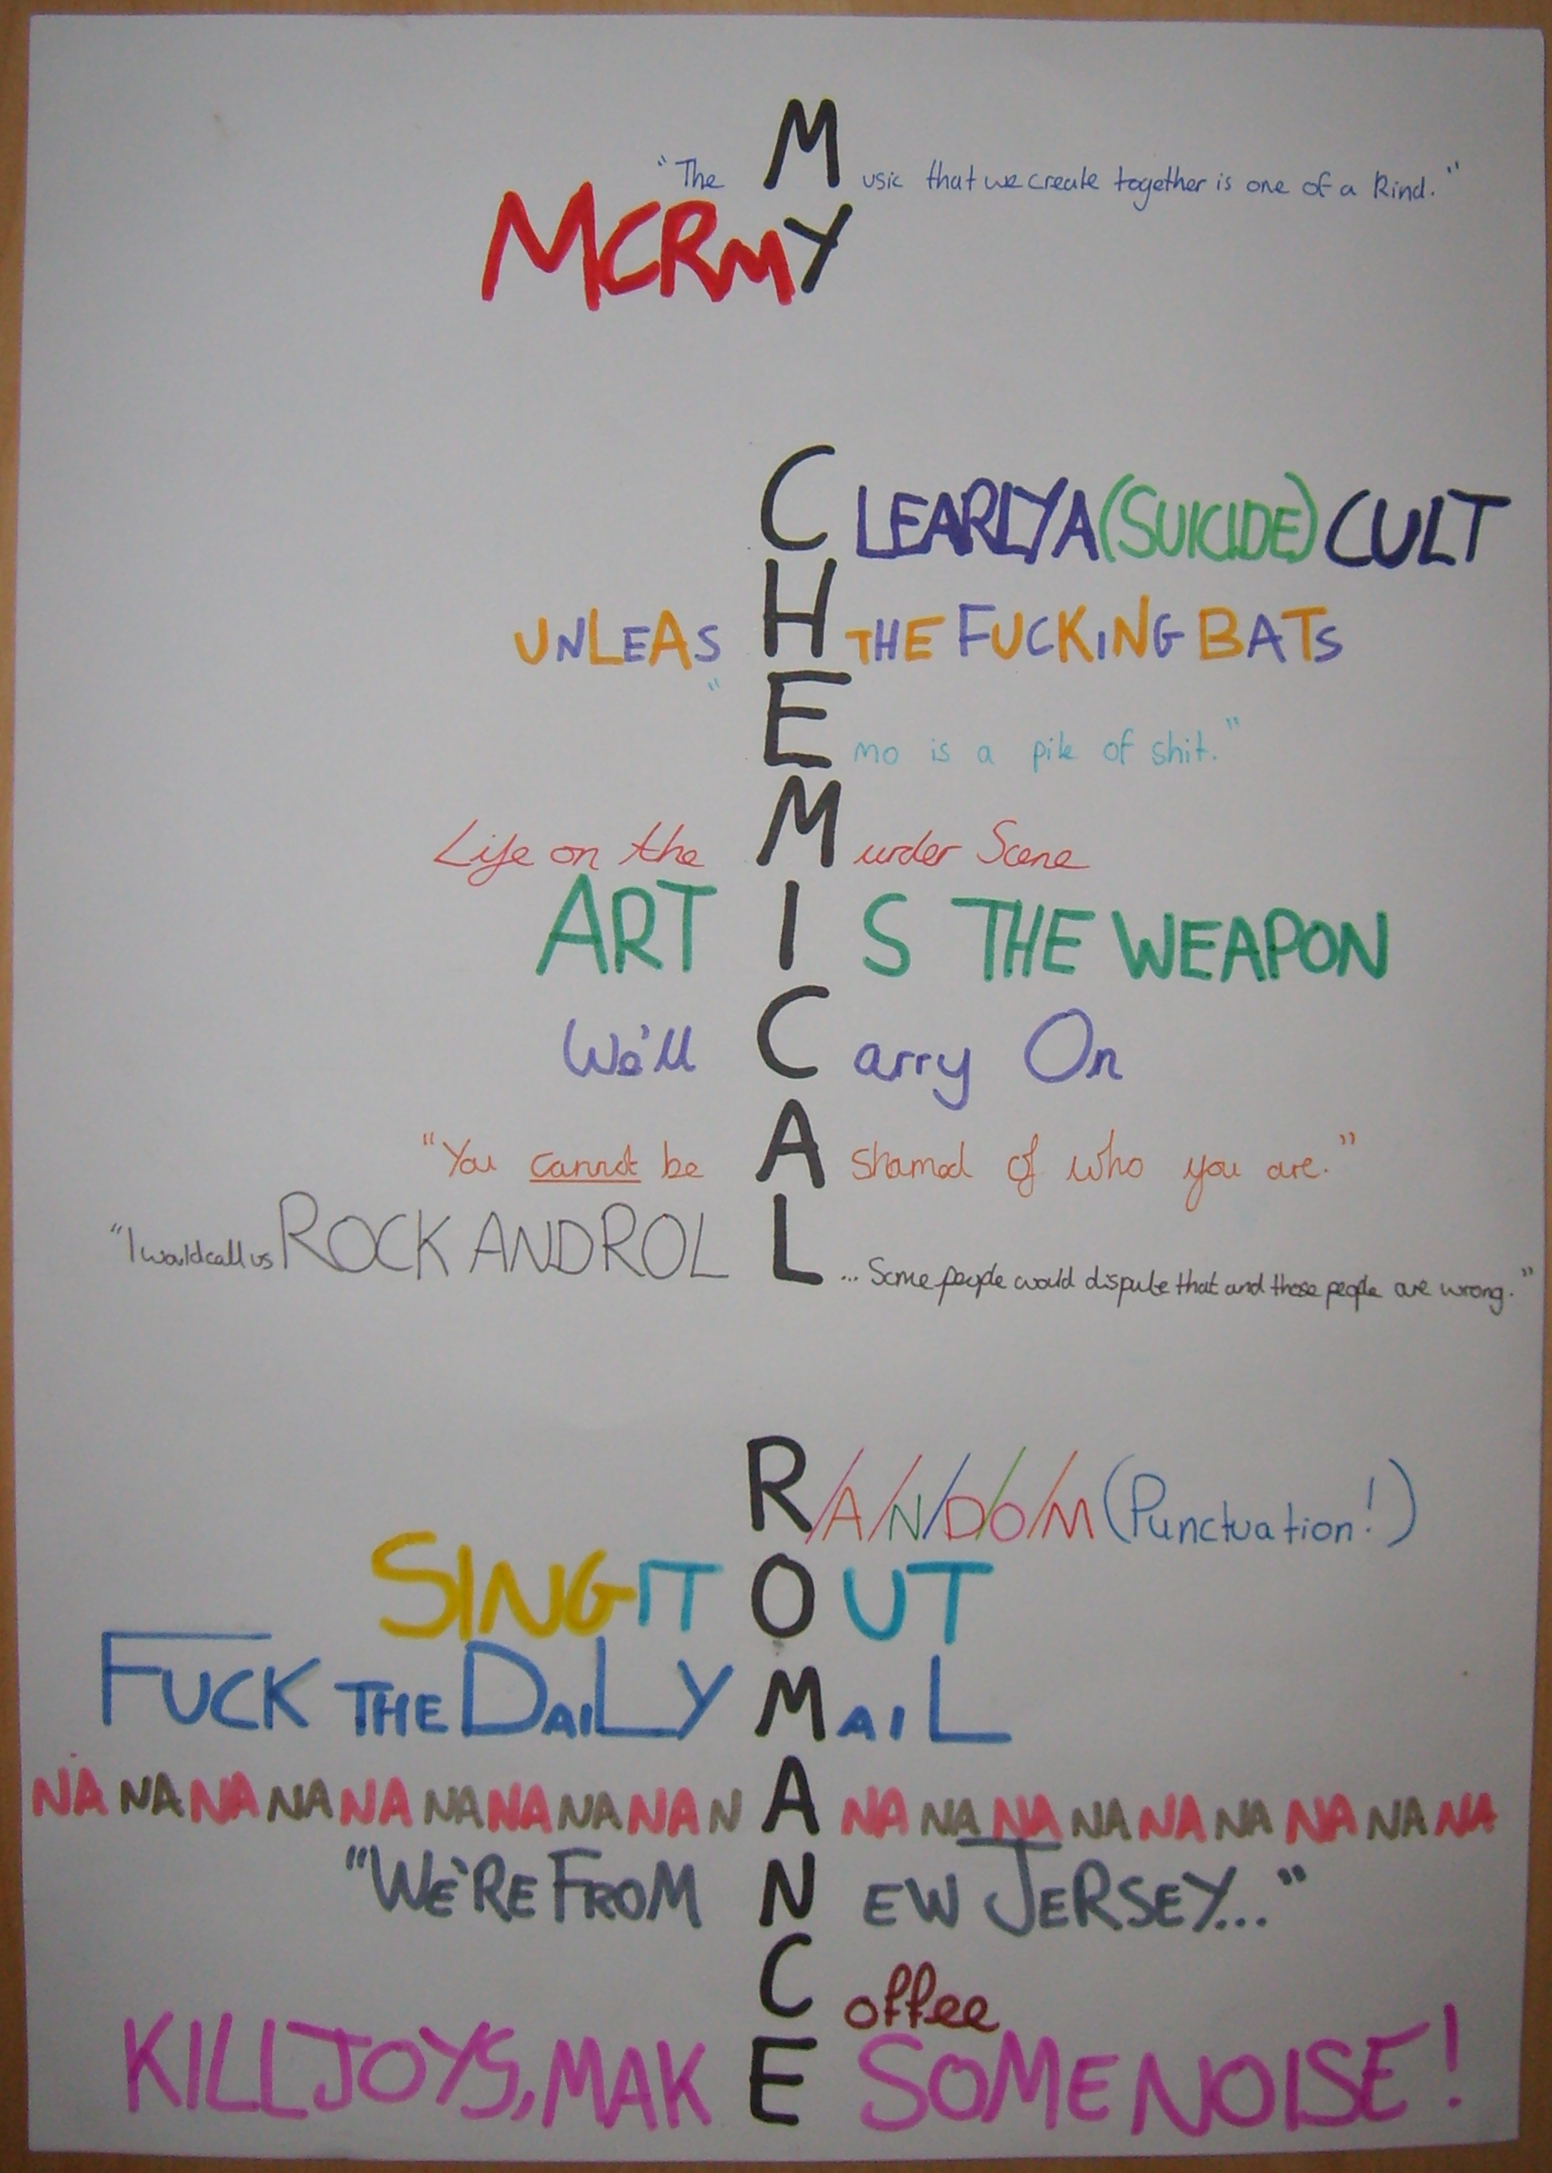 "The Music that we create together is one of a kind."
MCRmY
CLEARLY A (SUICIDE) CULT
UNLEASH THE FUCKING BATS
"Emo is a pile of shit."
Life on the Murder Scene
ART IS THE WEAPON
We'll Carry On
"You cannot be Ashamed of who you are."
"I would call us ROCK AND ROLL... Some people would dispute that and those people are wrong."
R/A/N/D/O/M (Punctuation!)
SING IT OUT
FUCK THE DAiLY MAiL
NA NA NA NA NA NA NA NA NA NA NA NA NA NA NA NA NA NA NA
"WE'RE FROM NEW JERSEY..."
Coffee
KILLJOYS, MAKE SOME NOISE!